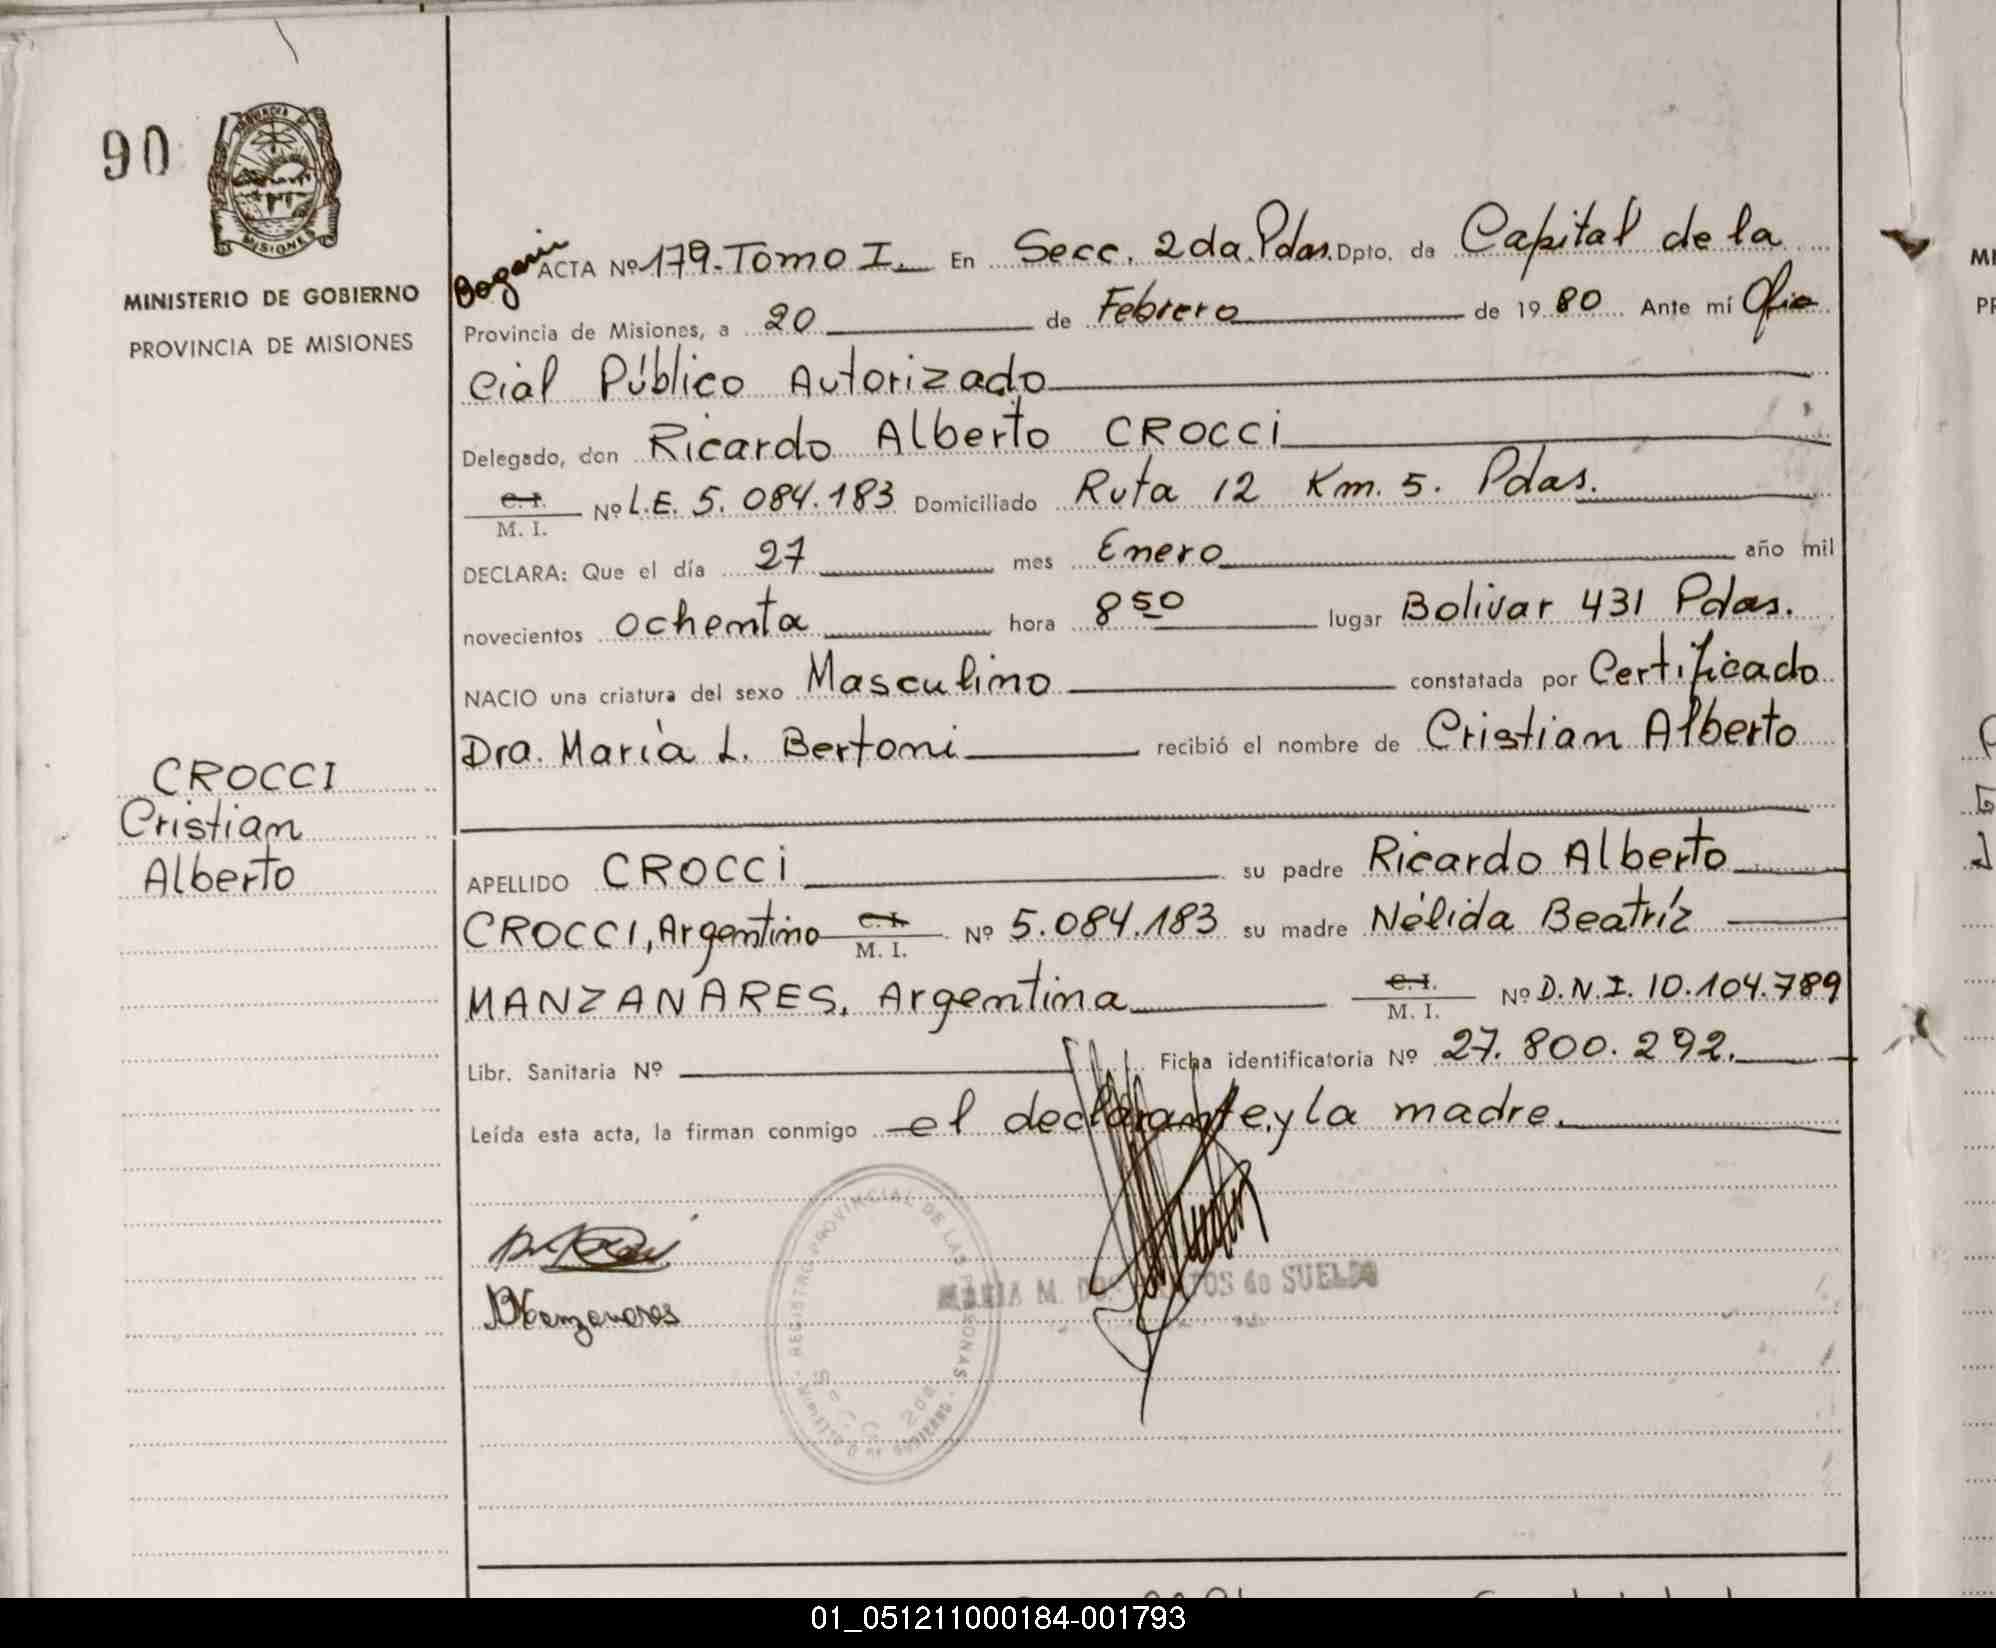 90
PROVINCIA DE
MISIONES
MINISTERIO DE GOBIERNO
PROVINCIA DE MISIONES
CROCCI
Cristian
Alberto
ACTA Nº 179. Tomo I. En Secc. 2da. Pdas. Dpto. de Capital de la
Provincia de Misiones, a 20 de Febrero de 1980 Ante mí Ofi
cial Público Autorizado
Delegado, don Ricardo Alberto CROCCI
C. I.
M. I. Nº L.E. 5.084.183 Domiciliado Ruta 12 Km. 5. Pdas.
DECLARA: Que el día 27 mes Enero año mil
novecientos ochenta hora 8 50 lugar Bolivar 431 Pdas.
NACIO una criatura del sexo Masculino constatada por Certificado
Dra. María L. Bertoni recibió el nombre de Cristian Alberto
APELLIDO CROCCI su padre Ricardo Alberto
CROCCI, Argentino C. I. M. I. Nº 5.084.183 su madre Nélida Beatríz
MANZANARES, Argentina C. I. M. I. Nº D.N.I. 10.104.789
Libr. Sanitaria Nº Ficha identificatoria Nº 27.800.292.
Leída esta acta, la firman conmigo el declarante y la madre.
REGISTRO PROVINCIAL DE LAS PERSONAS
MARIA M. DOS SANTOS de SUELDO
BManzanares
01_051211000184-001793